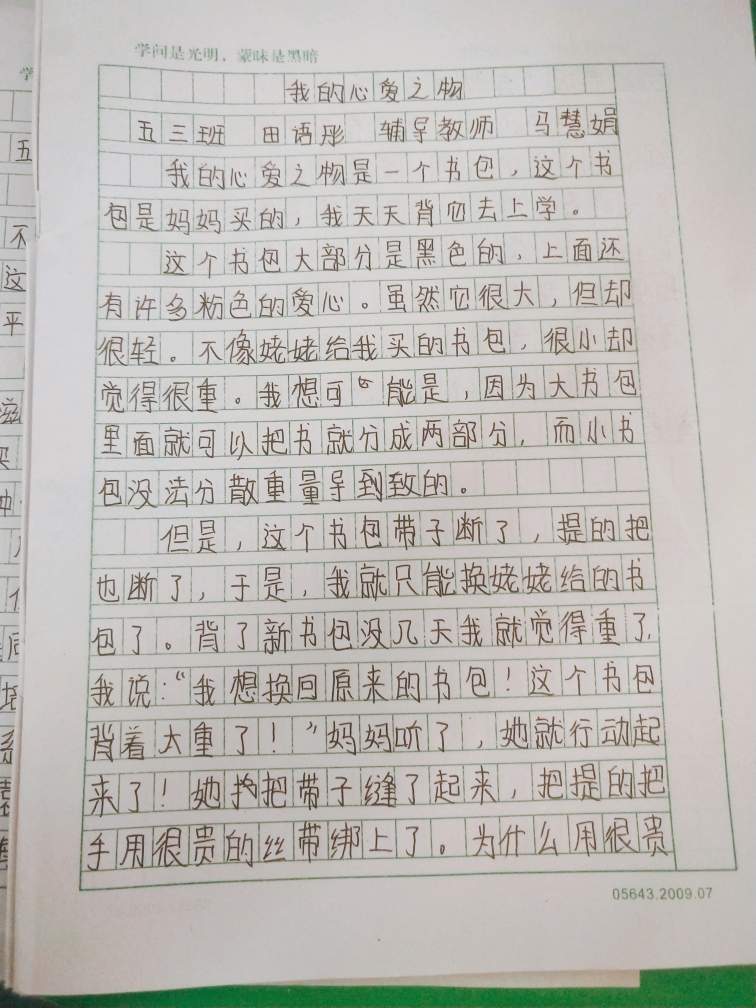 学问是光明，蒙昧是黑暗
我的心爱之物
五三班 田语彤 辅导教师 马慧娟
我的心爱之物是一个书包，这个书
包是妈妈买的，我天天背它去上学。
这个书包大部分是黑色的，上面还
有许多粉色的爱心。虽然它很大，但却
很轻。不像姥姥给我买的书包，很小却
觉得很重。我想可能是，因为大书包
里面就可以把书就分成两部分，而小书
包没法分散重量导到致的。
但是，这个书包带子断了，提的把
也断了，于是，我就只能换姥姥给的书
包了。背了新书包没几天我就觉得重了，
我说：“我想换回原来的书包！这个书包
背着太重了！”妈妈听了，她就行动起
来了！她把带子缝了起来，把提的把
手用很贵的丝带绑上了。为什么用很贵
05643.2009.07